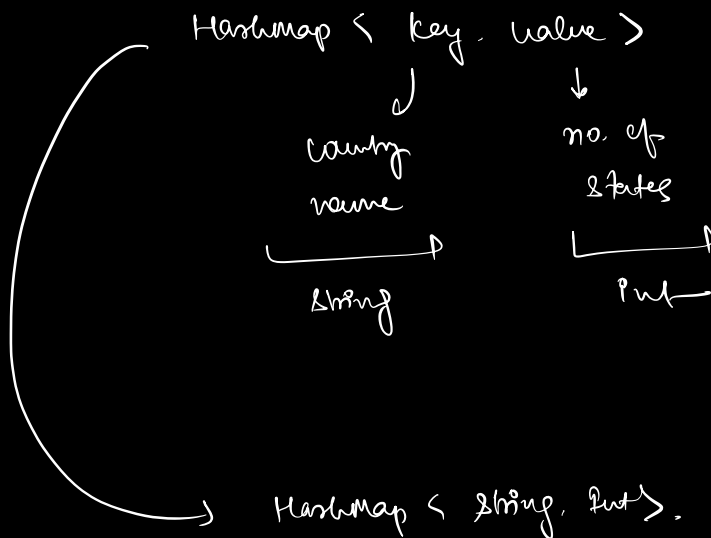 HashMap < key, value >
country name
no. of states
string
int
HashMap < string, int >.